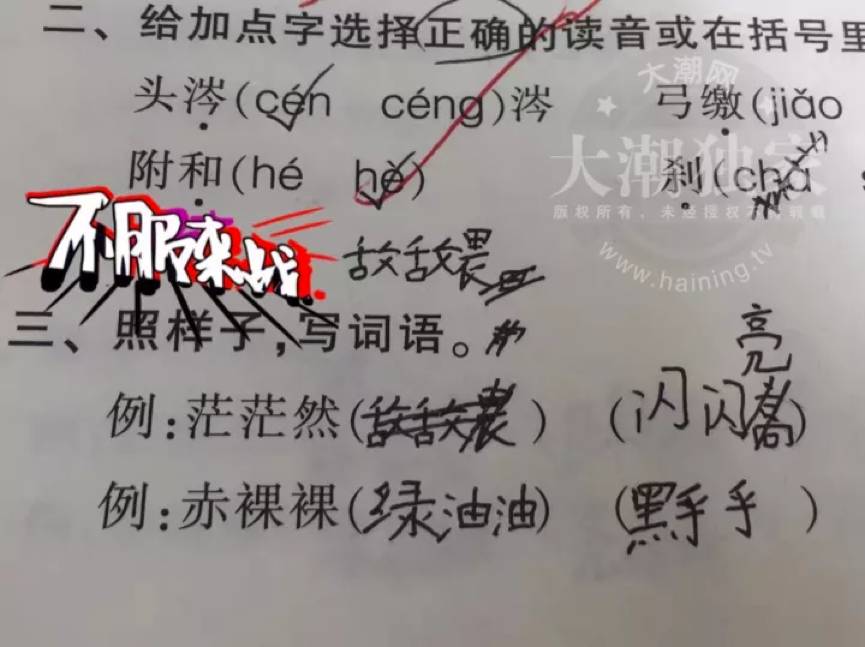 二、给加点字选择正确的读音或在括号里
头涔(cén céng)涔 弓缴(jiǎo
附和(hé hè) 刹(chà
大潮网
大潮独家
版权所有，未经授权不得转载
www.haining.tv
不服来战
三、照样子,写词语。
亮
例:茫茫然( ) (闪闪 )
例:赤裸裸(绿油油) (黑乎乎)